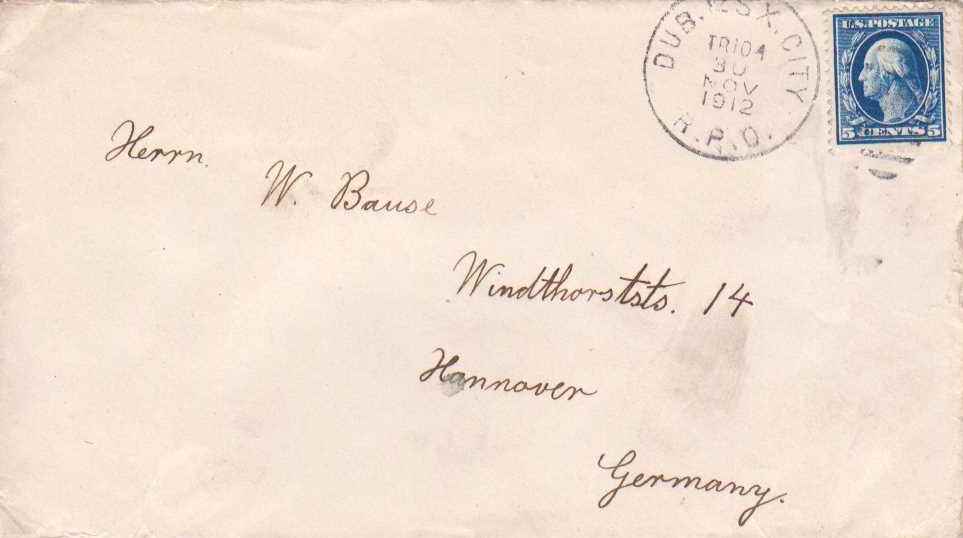 DUB. & SX. CITY
TR104
30
NOV
1912
R.P.O.
U.S. POSTAGE
5 CENTS 5
Herrn.
W. Bause
Windthorststs. 14
Hannover
Germany.